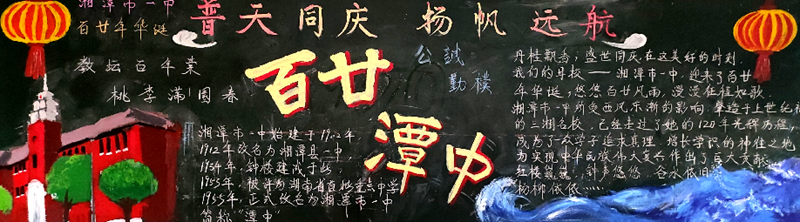 湘潭市一中
百廿年华诞
普天同庆 扬帆远航
教坛百年业
桃李满园春
百廿
潭中
公诚
勤朴
湘潭市一中始建于1902年
1912年改名为湘潭县一中
1954年,钟楼建成于此,
1953年,被评为湖南省首批重点中学
1955年,正式改名为湘潭市一中
简称“潭中”
丹桂飘香,盛世同庆在这美好的时刻.
我们的母校——湘潭市一中,迎来了百廿
年华诞,悠悠百廿风雨,漫漫征程如歌.
湘潭市一中所受西风东渐的影响,肇造于上世纪初
的三湘名校,已经走过了她的120年光辉历程,
成为了一众学子追求真理 增长学识的神往之地
为实现中华民族伟大复兴作出了巨大贡献
红楼巍巍,钟声悠悠
杨柳依依……